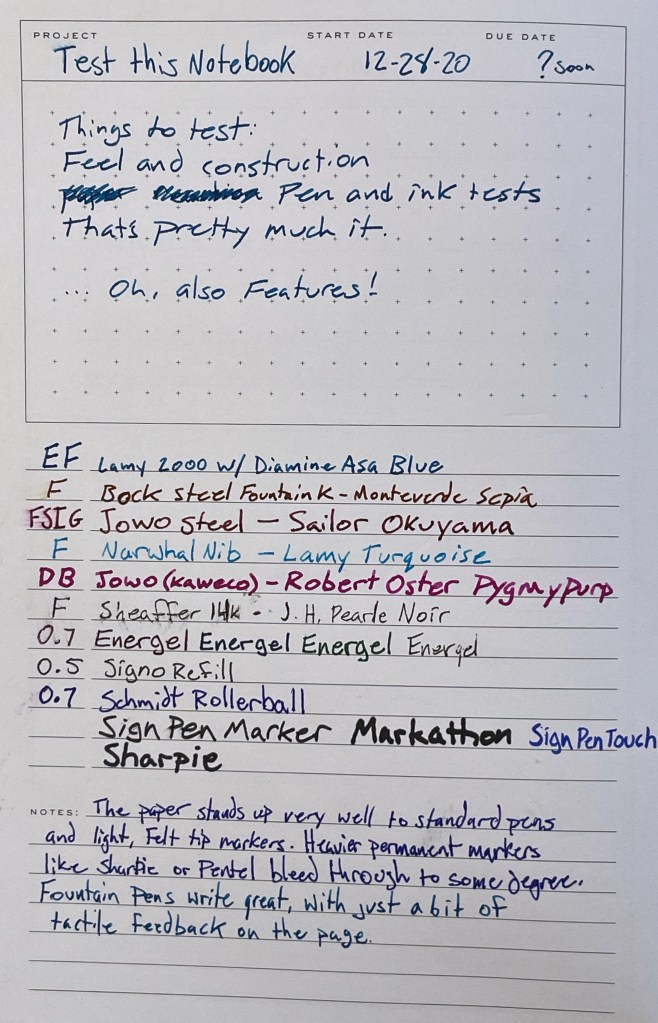 PROJECT START DATE DUE DATE
Test this Notebook 12-28-20 ? soon
Things to test:
Feel and construction
Pen and ink tests
That's pretty much it.
... Oh, also Features!
EF Lamy 2000 w/ Diamine Asa Blue
F Bock Steel Fountain K - Monteverde Sepia
FSIG Jowo Steel - Sailor Okuyama
F Narwhal Nib - Lamy Turquoise
DB Jowo (Kaweco) - Robert Oster Pygmy Purp
F Sheaffer 14k - J. H. Pearle Noir
0.7 Energel Energel Energel Energel
0.5 Signo Refill
0.7 Schmidt Rollerball
Sign Pen Marker Markathon Sign Pen Touch
Sharpie
NOTES: The paper stands up very well to standard pens
and light, felt tip markers. Heavier permanent markers
like Sharpie or Pentel bleed through to some degree.
Fountain Pens write great, with just a bit of
tactile feedback on the page.